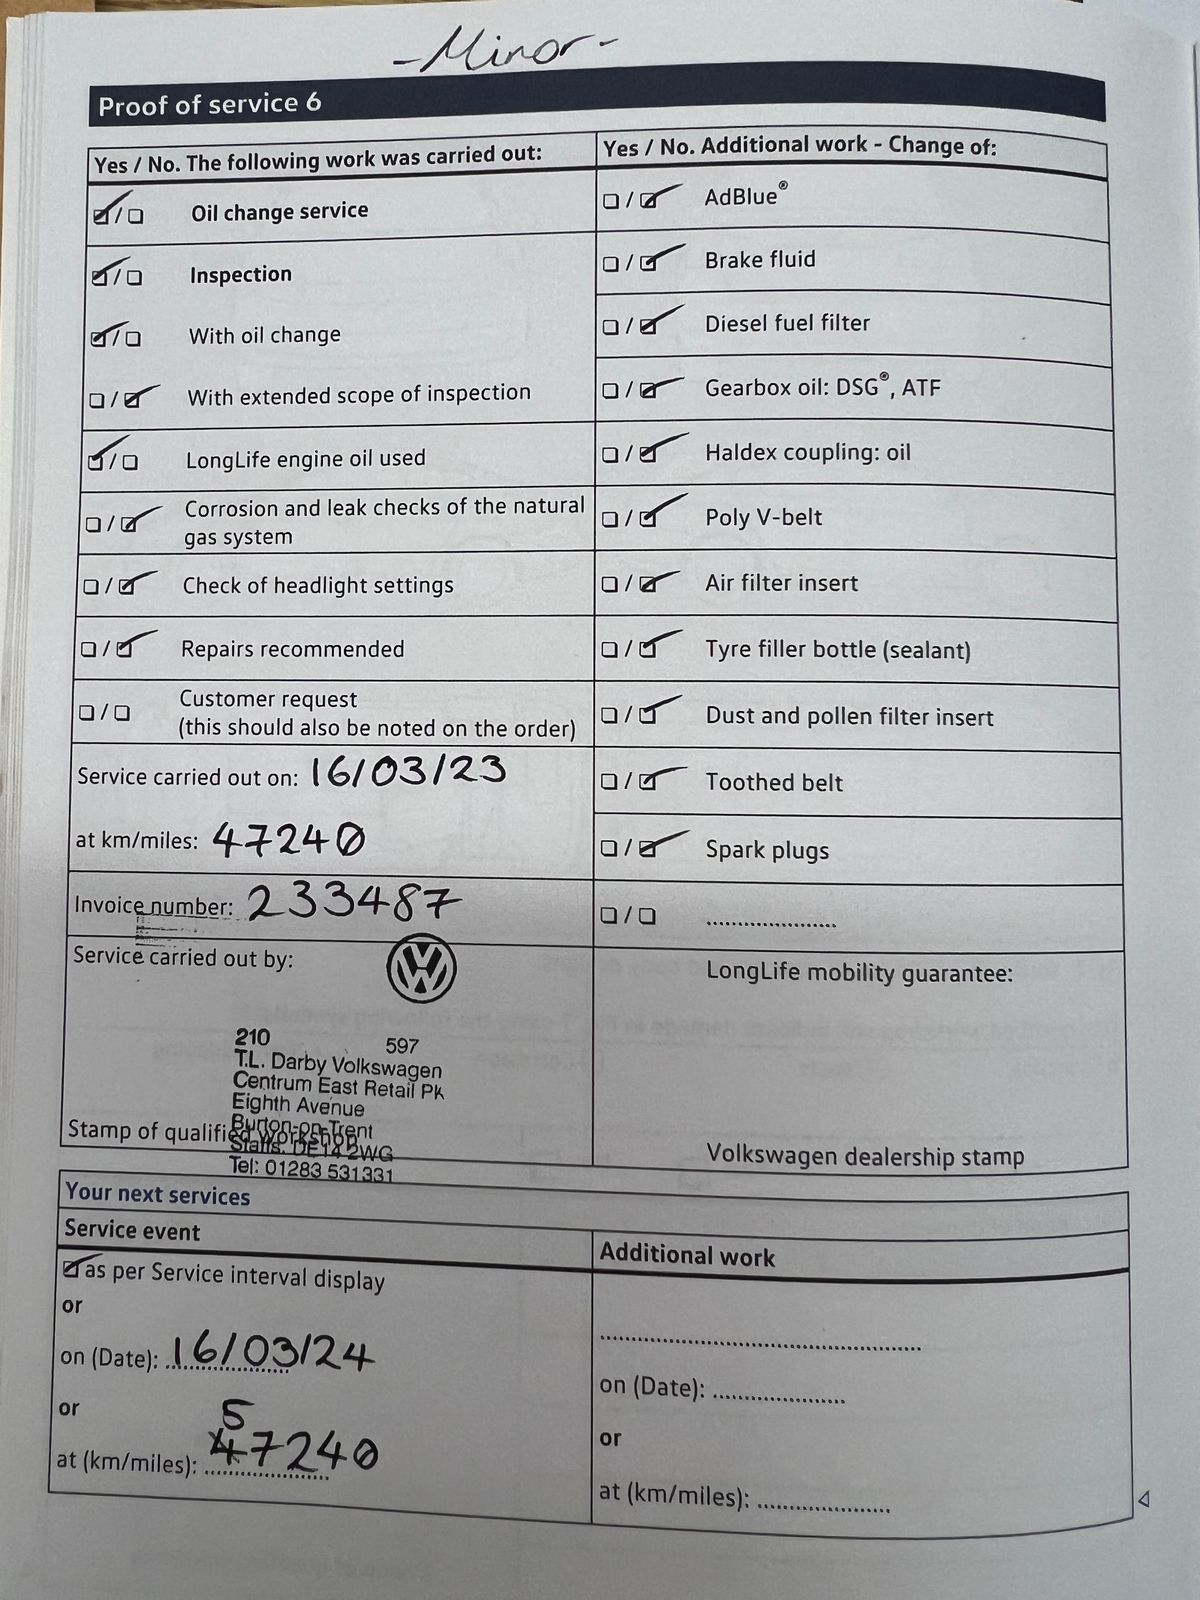 -Minor-
Proof of service 6
Yes / No. The following work was carried out:
☑/☐ Oil change service
☑/☐ Inspection
☑/☐ With oil change
☐/☑ With extended scope of inspection
☑/☐ LongLife engine oil used
☐/☑ Corrosion and leak checks of the natural
gas system
☐/☑ Check of headlight settings
☐/☑ Repairs recommended
☐/☐ Customer request
(this should also be noted on the order)
Service carried out on: 16/03/23
at km/miles: 47240
Invoice number: 233487
Service carried out by:
210 597
T.L. Darby Volkswagen
Centrum East Retail Pk
Eighth Avenue
Burton-on-Trent
Stamp of qualified workshop
Staffs. DE14 2WG
Tel: 01283 531331
Yes / No. Additional work - Change of:
☐/☑ AdBlue®
☐/☑ Brake fluid
☐/☑ Diesel fuel filter
☐/☑ Gearbox oil: DSG®, ATF
☐/☑ Haldex coupling: oil
☐/☑ Poly V-belt
☐/☑ Air filter insert
☐/☑ Tyre filler bottle (sealant)
☐/☑ Dust and pollen filter insert
☐/☑ Toothed belt
☐/☑ Spark plugs
☐/☐ ....................
LongLife mobility guarantee:
Volkswagen dealership stamp
Your next services
Service event
☑ as per Service interval display
or
on (Date): 16/03/24
or
5
at (km/miles): 47240
Additional work
..................................................
on (Date): ....................
or
at (km/miles): ....................